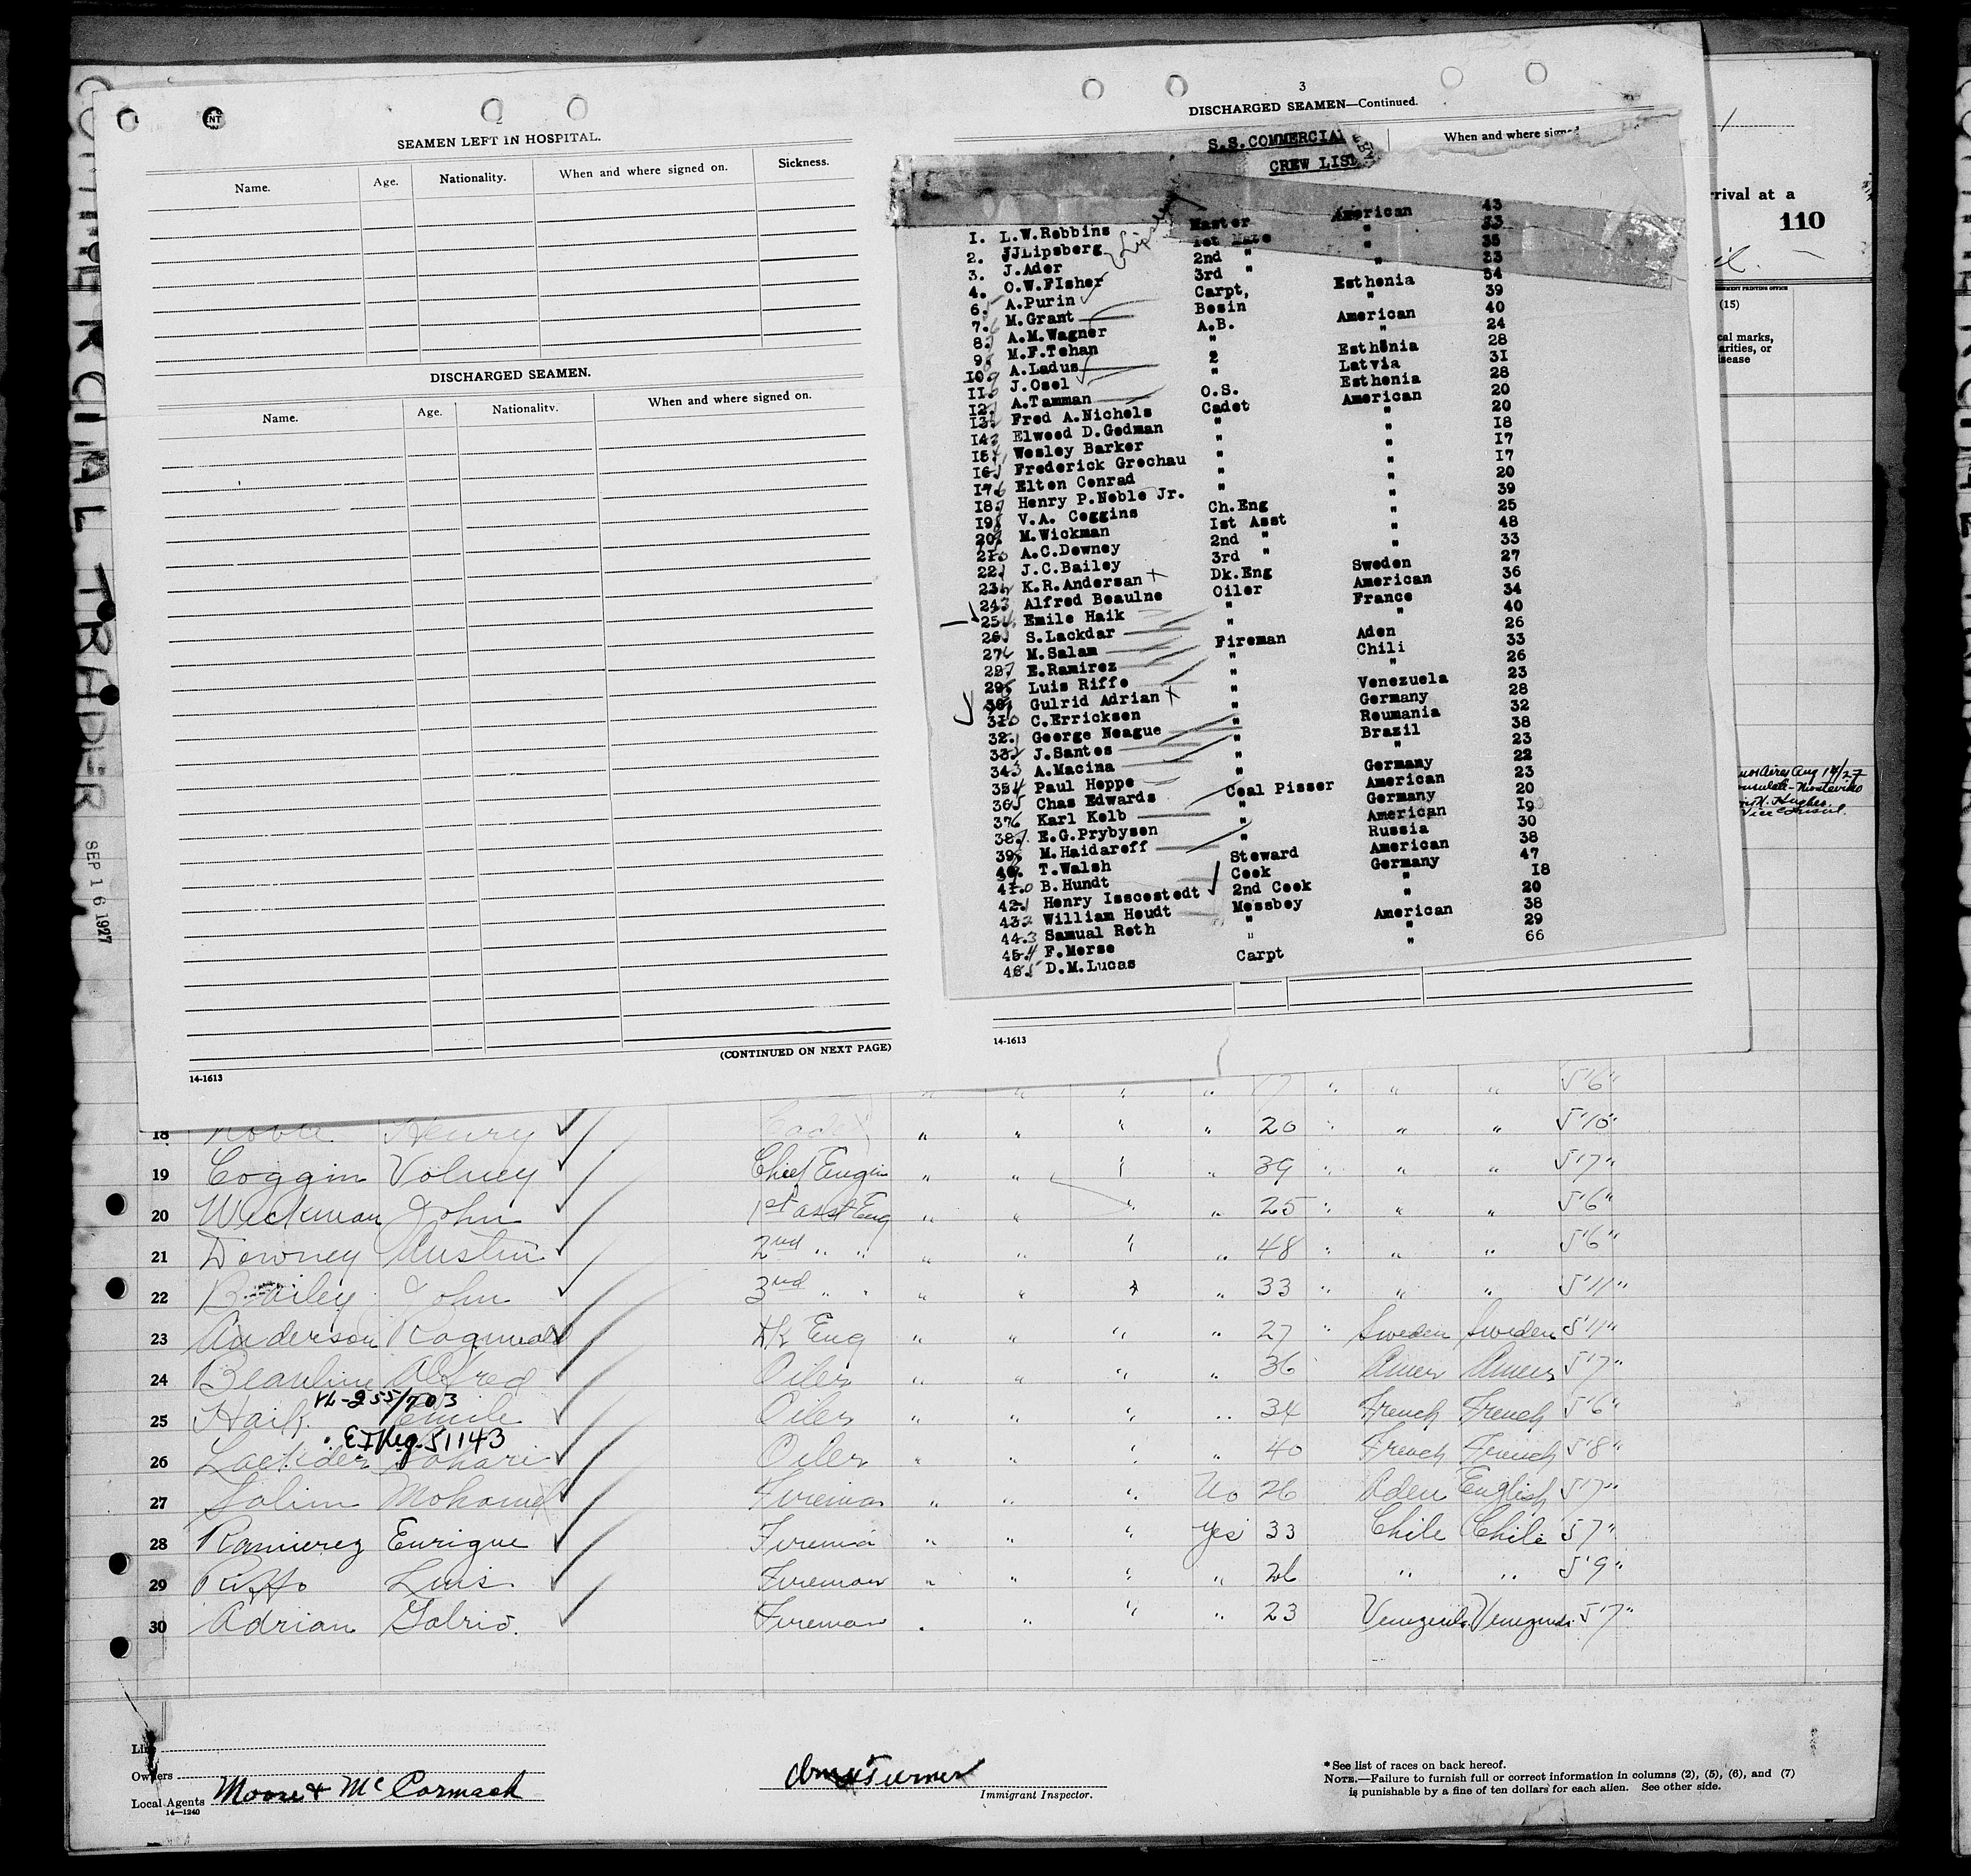 COMMERCIAL TRADER SEP 16 1927
SEAMEN LEFT IN HOSPITAL.
Name. Age. Nationality. When and where signed on. Sickness.
DISCHARGED SEAMEN.
Name. Age. Nationality. When and where signed on.
(CONTINUED ON NEXT PAGE)
14-1613
3
DISCHARGED SEAMEN—Continued.
When and where signed
S.S.COMMERCIAL
CREW LIST
1. L.W.Robbins Master American 43
2. JJLipsberg 1st Mate " 33
3. J.Ader 2nd " " 35
4. O.W.FIsher 3rd " " 33
6. A.Purin Carpt, Esthonia 54
7. M.Grant Bosin " 39
8. A.M.Wagner A.B. American 40
9. M.F.Tehan " " 24
10. A.Ladus Esthonia 28
11. J.Osol " Latvia 31
12. A.Tamman O.S. Esthonia 28
13. Fred A.Nichols Cadet American 20
14. Elwood D.Godman " " 20
15. Wesley Barker " " 18
16. Frederick Grochau " " 17
17. Elton Conrad " " 17
18. Henry P.Noble Jr. " " 20
19. V.A. Coggins Ch.Eng " 39
20. M.Wickman Ist Asst " 25
21. A.C.Downey 2nd " " 48
22. J.C.Bailey 3rd " " 33
23. K.R.Andersan Dk.Eng Sweden 27
24. Alfred Beaulne Oiler American 36
25. Emile Haik " France 34
26. S.Lackdar " " 40
27. M.Salam Fireman Aden 26
28. E.Ramirez " Chili 33
29. Luis Riffo " " 26
30. Gulrid Adrian " Venezuela 23
31. C.Erricksen " Germany 28
32. George Neague " Roumania 32
33. J.Santos " Brazil 38
34. A.Macina " " 23
35. Paul Hoppe " Germany 22
36. Chas Edwards Coal Pisser American 23
37. Karl Kolb " Germany 20
38. E.G.Prybyson " American 19
39. M.Haidaroff " Russia 30
40. T.Walsh Steward American 38
41. B.Hundt Cook Germany 47
42. Henry Isscostedt 2nd Cook " 18
43. William Houdt Messboy " 20
44. Samual Roth " American 38
45. F.Morse " " 29
46. D.M.Lucas Carpt " 66
14-1613
rrival at a
110
(15)
cal marks,
arities, or
isease
Aires Aug 18/27
Hughes
Vice Consul.
17 " " 5'6"
18 Noble Henry Cadet " " " " 20 " " " 5'10"
19 Coggin Volney Chief Engin " " " " 39 " " " 5'7"
20 Wickman John 1st asst Eng " " " " 25 " " " 5'6"
21 Downey Austin 2nd " " " " " " 48 " " " 5'6"
22 Bailey John 3rd " " " " " 33 " " " 5'11"
23 Anderson Ragnval Dk Eng " " " " 27 " Sweden Sweden 5'11"
24 Beauline Alfred Oiler " " " " 36 Amer Amer 5'7"
VL-255/703
25 Haik Emile Oiler " " " " 34 French French 5'6"
EI Reg. 51143
26 Lackder Oiler " " " " 40 French French 5'8"
27 Salim Mohamed Fireman " " " No 26 Aden English 5'7"
28 Ramierez Enrique Firema " " " Yes 33 Chile Chile 5 7"
29 Riffo Luis Fireman " " " " 26 " " 5'9"
30 Adrian Golrio. Fireman " " " 23 Venezuela Venezuela 5'7"
Line
Owners
Local Agents Moore & McCormack
14—1240
Turner
Immigrant Inspector.
* See list of races on back hereof.
NOTE.—Failure to furnish full or correct information in columns (2), (5), (6), and (7)
is punishable by a fine of ten dollars for each alien. See other side.